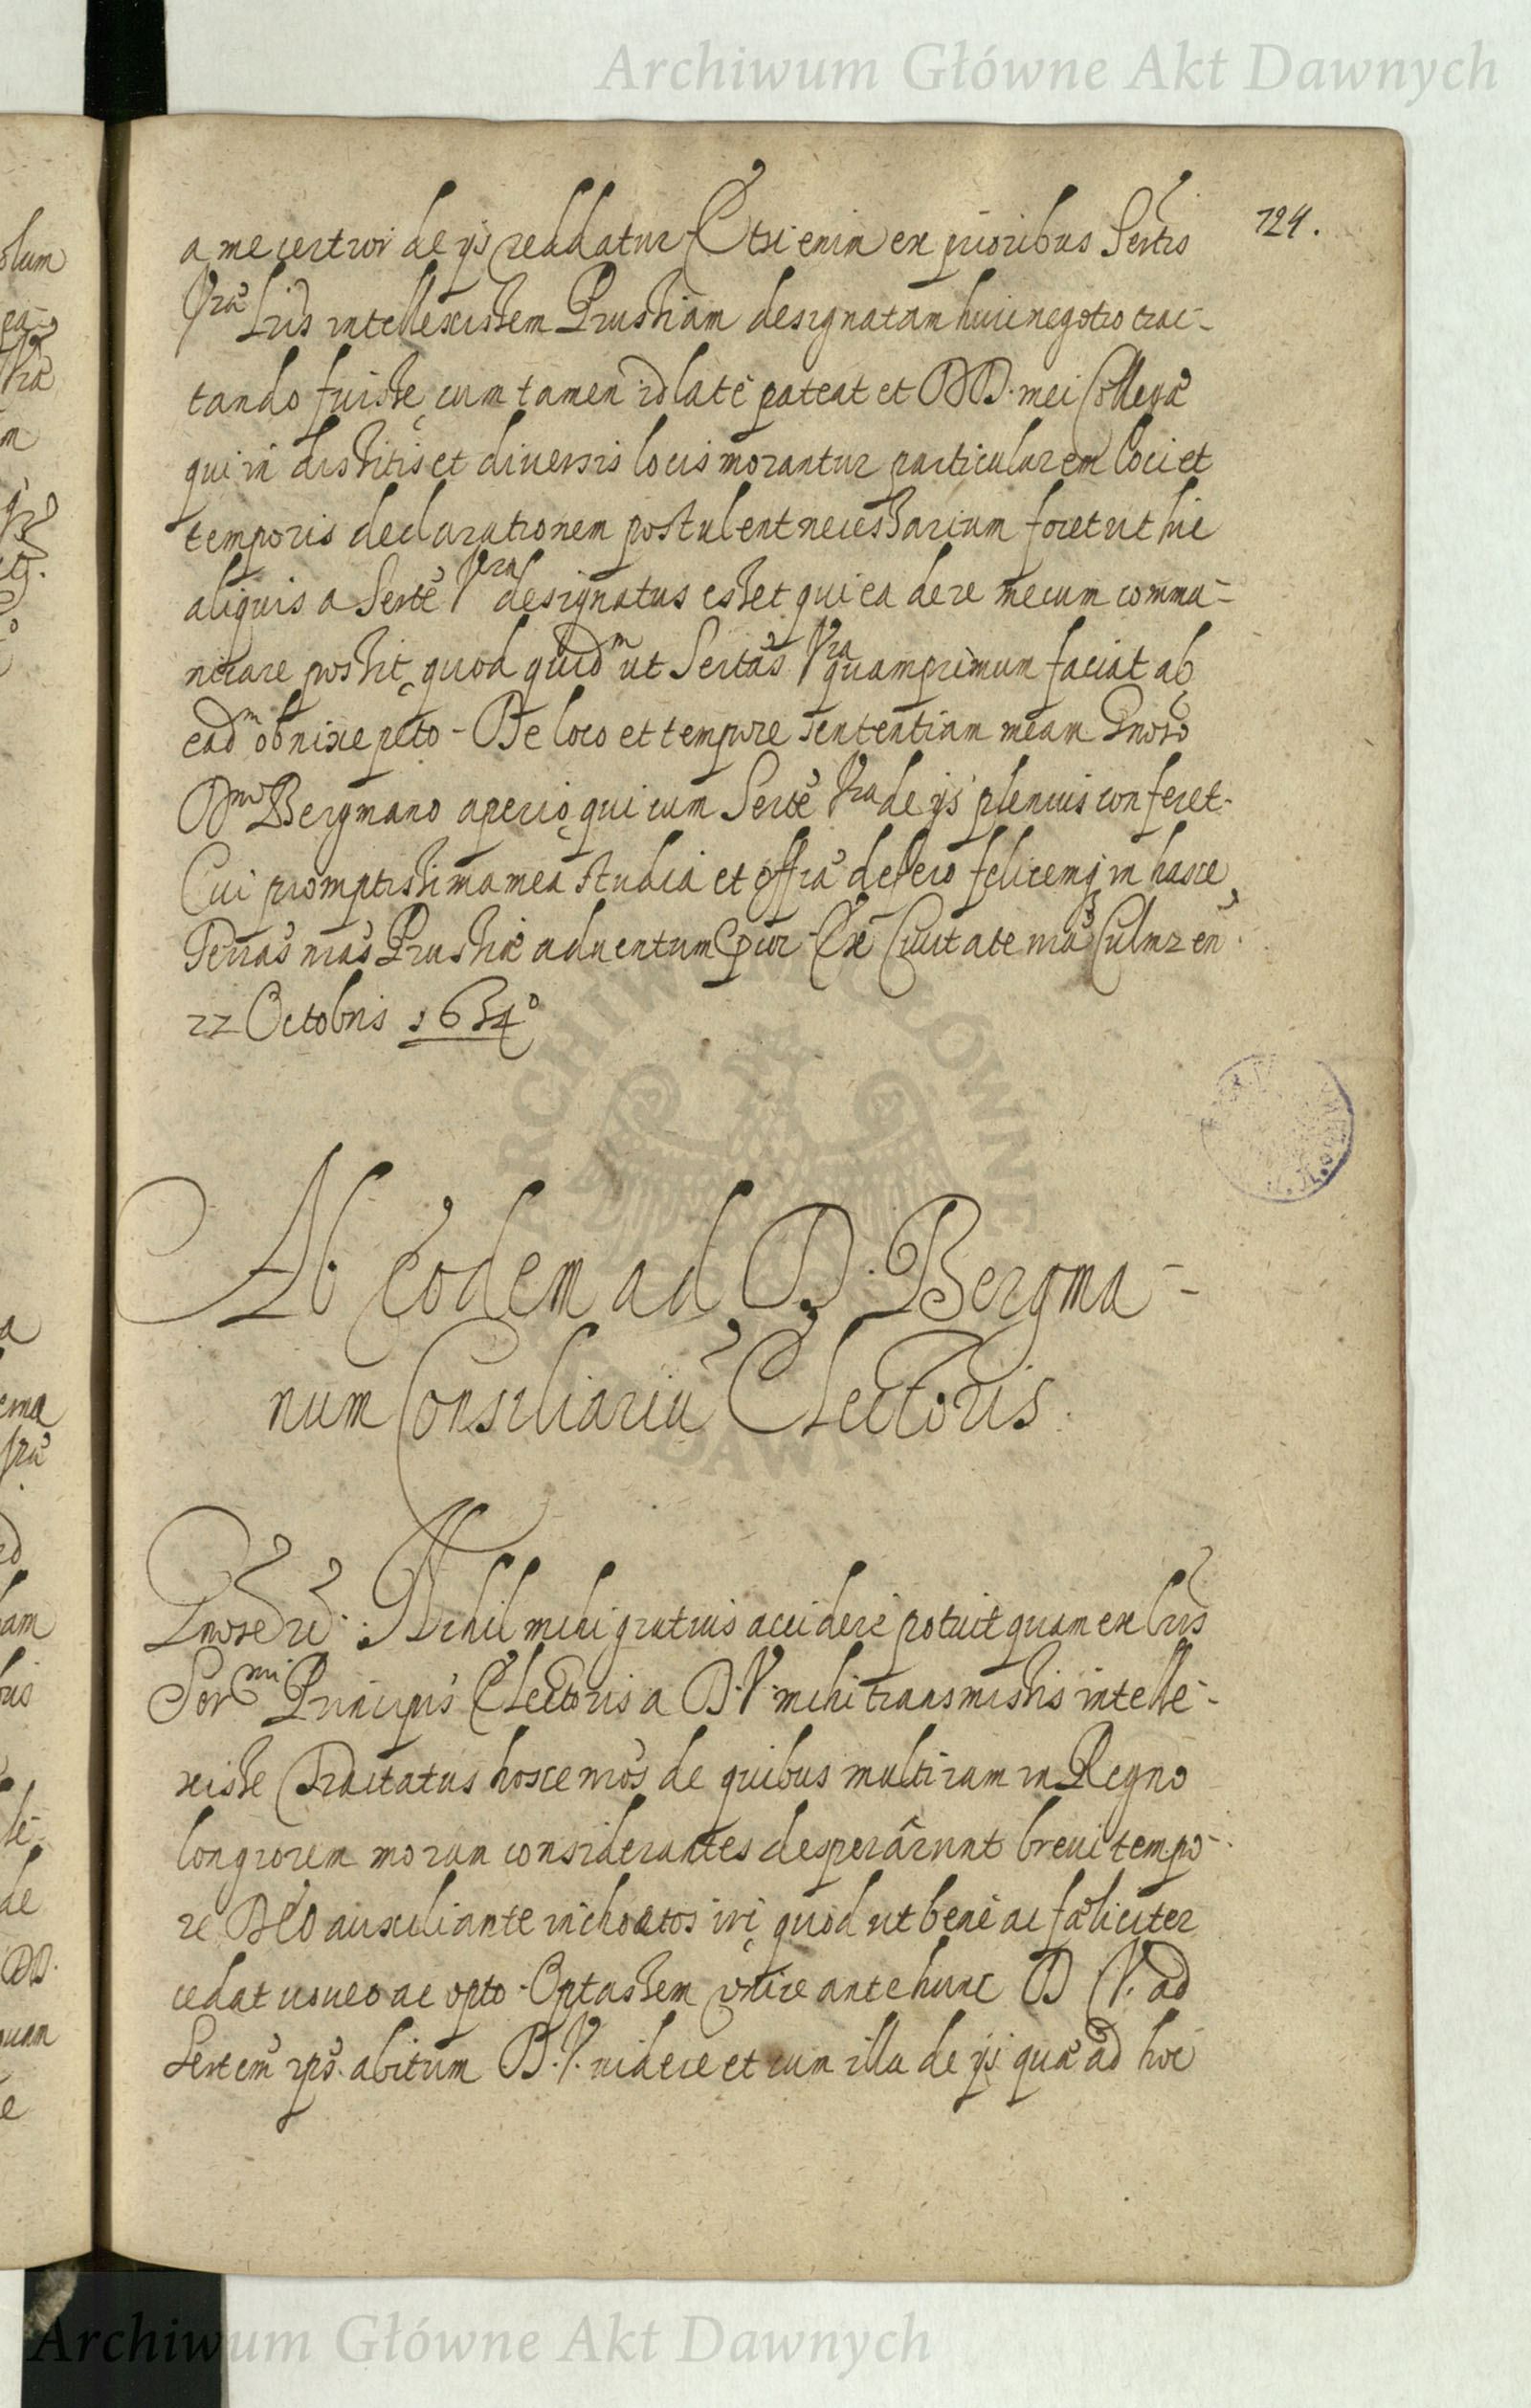 Archiwum Główne Akt Dawnych
124.
a me certior de ijs reddatur Etsi enim ex prioribus Sertis
Vrae Lris intellexissem Prussiam designatam huic negotio trac-
tando fuisse, cum tamen id latè pateat et DD. mei Collegae
qui in dissitis et diuersis locis morantur particularem loci et
temporis declarationem postulent necessarium foret ut hic
aliquis a Serte Vra designatus esset qui ea de re mecum commu-
nicare possit, quod quidm ut Sertas Vra quamprimum faciat ab
eadm obnixe peto - De loco et tempore sententiam meam Gnoso
Dno Bergmano aperio, qui cum Serte Vra de ijs plenius conferet.
Cui promptissima mea studia et offia defero felicemq in hasce
Terras nras Prussiae aduentum Cpior Ex Ciuitate mea Culmzen.
22 Octobris 1634o
Ab Eodem ad D. Bergma-
num Consiliariu Electoris.
Gnose Dne. Nihil mihi gratius accidere potuit quam ex Lris
Sermi Principis Electoris a D. V. mihi transmissis intelle-
xisse Tractatus hosce nros de quibus multi iam in Regno
longiorem moram considerantes desperârunt breui tempo-
re DEO auxiliante inchoatos iri, quod ut bene ac faeliciter
cedat uoueo ac opto - Optassem ante hunc D V. ad
Sertem ips. abitum D. V. uidere et cum illa de ijs quae ad hoc
Archiwum Główne Akt Dawnych